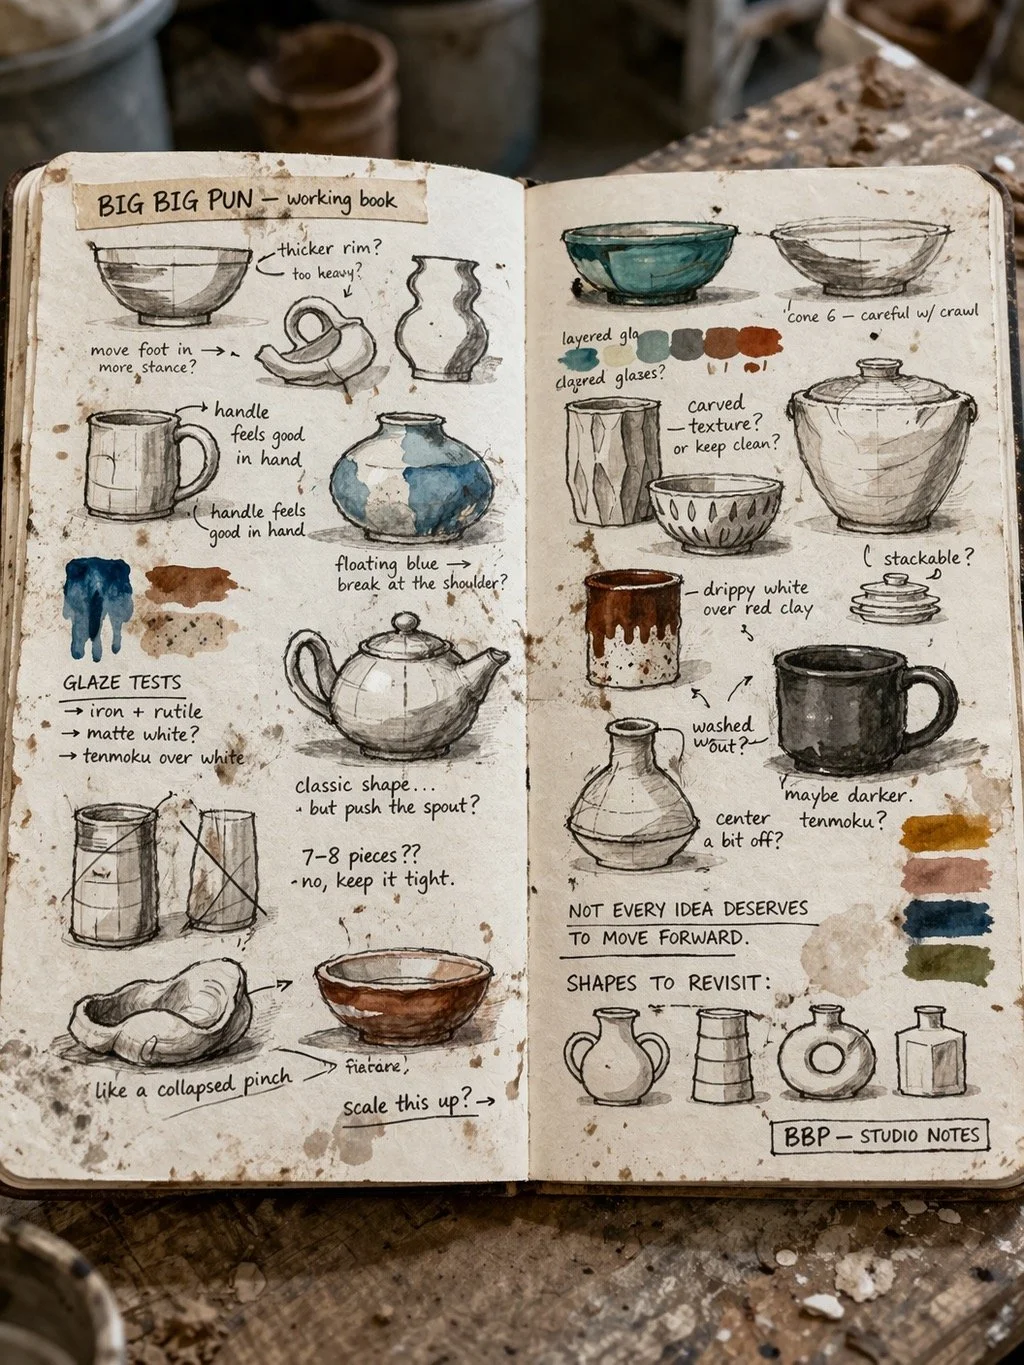 BIG BIG PUN — working book
thicker rim?
too heavy?
move foot in →
more stance?
handle
feels good
in hand
handle feels
good in hand
floating blue →
break at the shoulder?
GLAZE TESTS
→ iron + rutile
→ matte white?
→ tenmoku over white
classic shape...
- but push the spout?
7–8 pieces??
- no, keep it tight.
like a collapsed pinch
scale this up? →
cone 6 — careful w/ crawl
layered gla
glazes?
carved
texture?
or keep clean?
stackable?
drippy white
over red clay
washed
out?
maybe darker.
tenmoku?
center
a bit off?
NOT EVERY IDEA DESERVES
TO MOVE FORWARD.
SHAPES TO REVISIT:
BBP — STUDIO NOTES